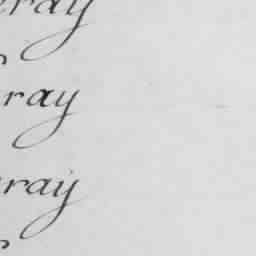 eray
ray
ray